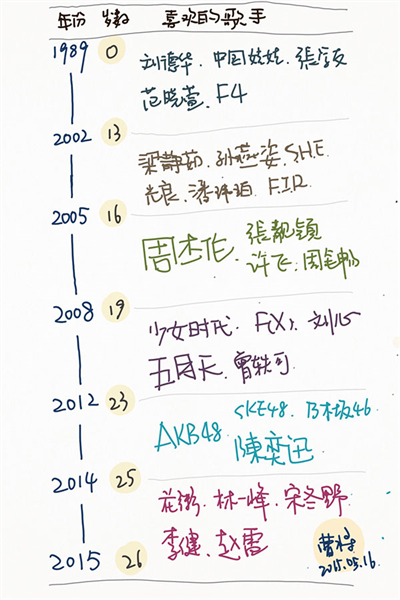 年份 岁数 喜欢的歌手
1989 0
刘德华、中国娃娃、張信哲
范晓萱、F4
2002 13
梁静茹、孙燕姿、S.H.E
光良、潘玮珀、F.I.R
2005 16
周杰伦、張靓穎
许飞、周笔畅
2008 19
少女时代、F(X)、刘心
五月天、曾轶可
2012 23
SKE48、乃木坂46
AKB48 陳奕迅
2014 25
花粥、林一峰、宋冬野
李健、赵雷
2015 26
2015.05.16